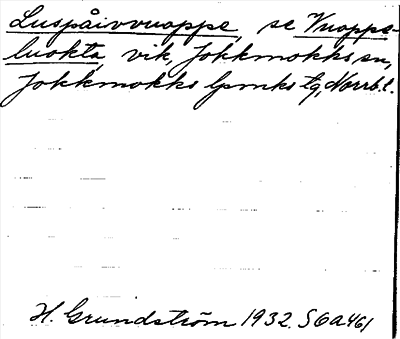 Luspåivvuoppe, se Vuoppe-
luokta, vik, Jokkmokks sn,
Jokkmokks lpmks tg, Norrb. l.
H. Grundström 1932. S6A461